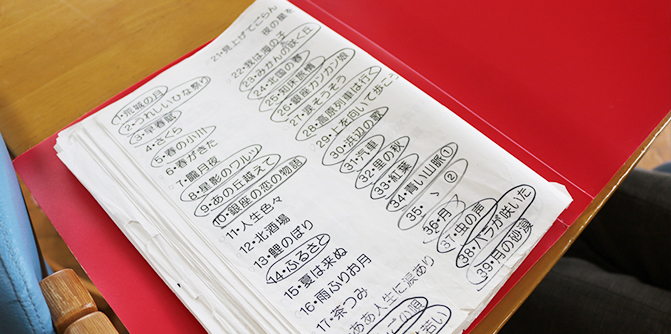 1・荒城の月
2・うれしいひな祭り
3・早春賦
4・さくら
5・春の小川
6・春がきた
7・朧月夜
8・星影のワルツ
9・あの丘越えて
10・銀座の恋の物語
11・人生色々
12・北酒場
13・鯉のぼり
14・ふるさと
15・夏は来ぬ
16・雨ふりお月
17・茶つみ
ああ人生に涙あり
21・見上げてごらん
夜の星を
22・我は海の子
23・みかんの咲く丘
24・北国の春
25・知床旅情
26・銀座カンカン娘
27・涙そうそう
28・高原列車は行く
29・上を向いて歩こう
30・浜辺の歌
31・汽車
32・里の秋
33・紅葉
34・青い山脈①
35・〃②
36・月
37・虫の声
38・バラが咲いた
39・月の沙漠